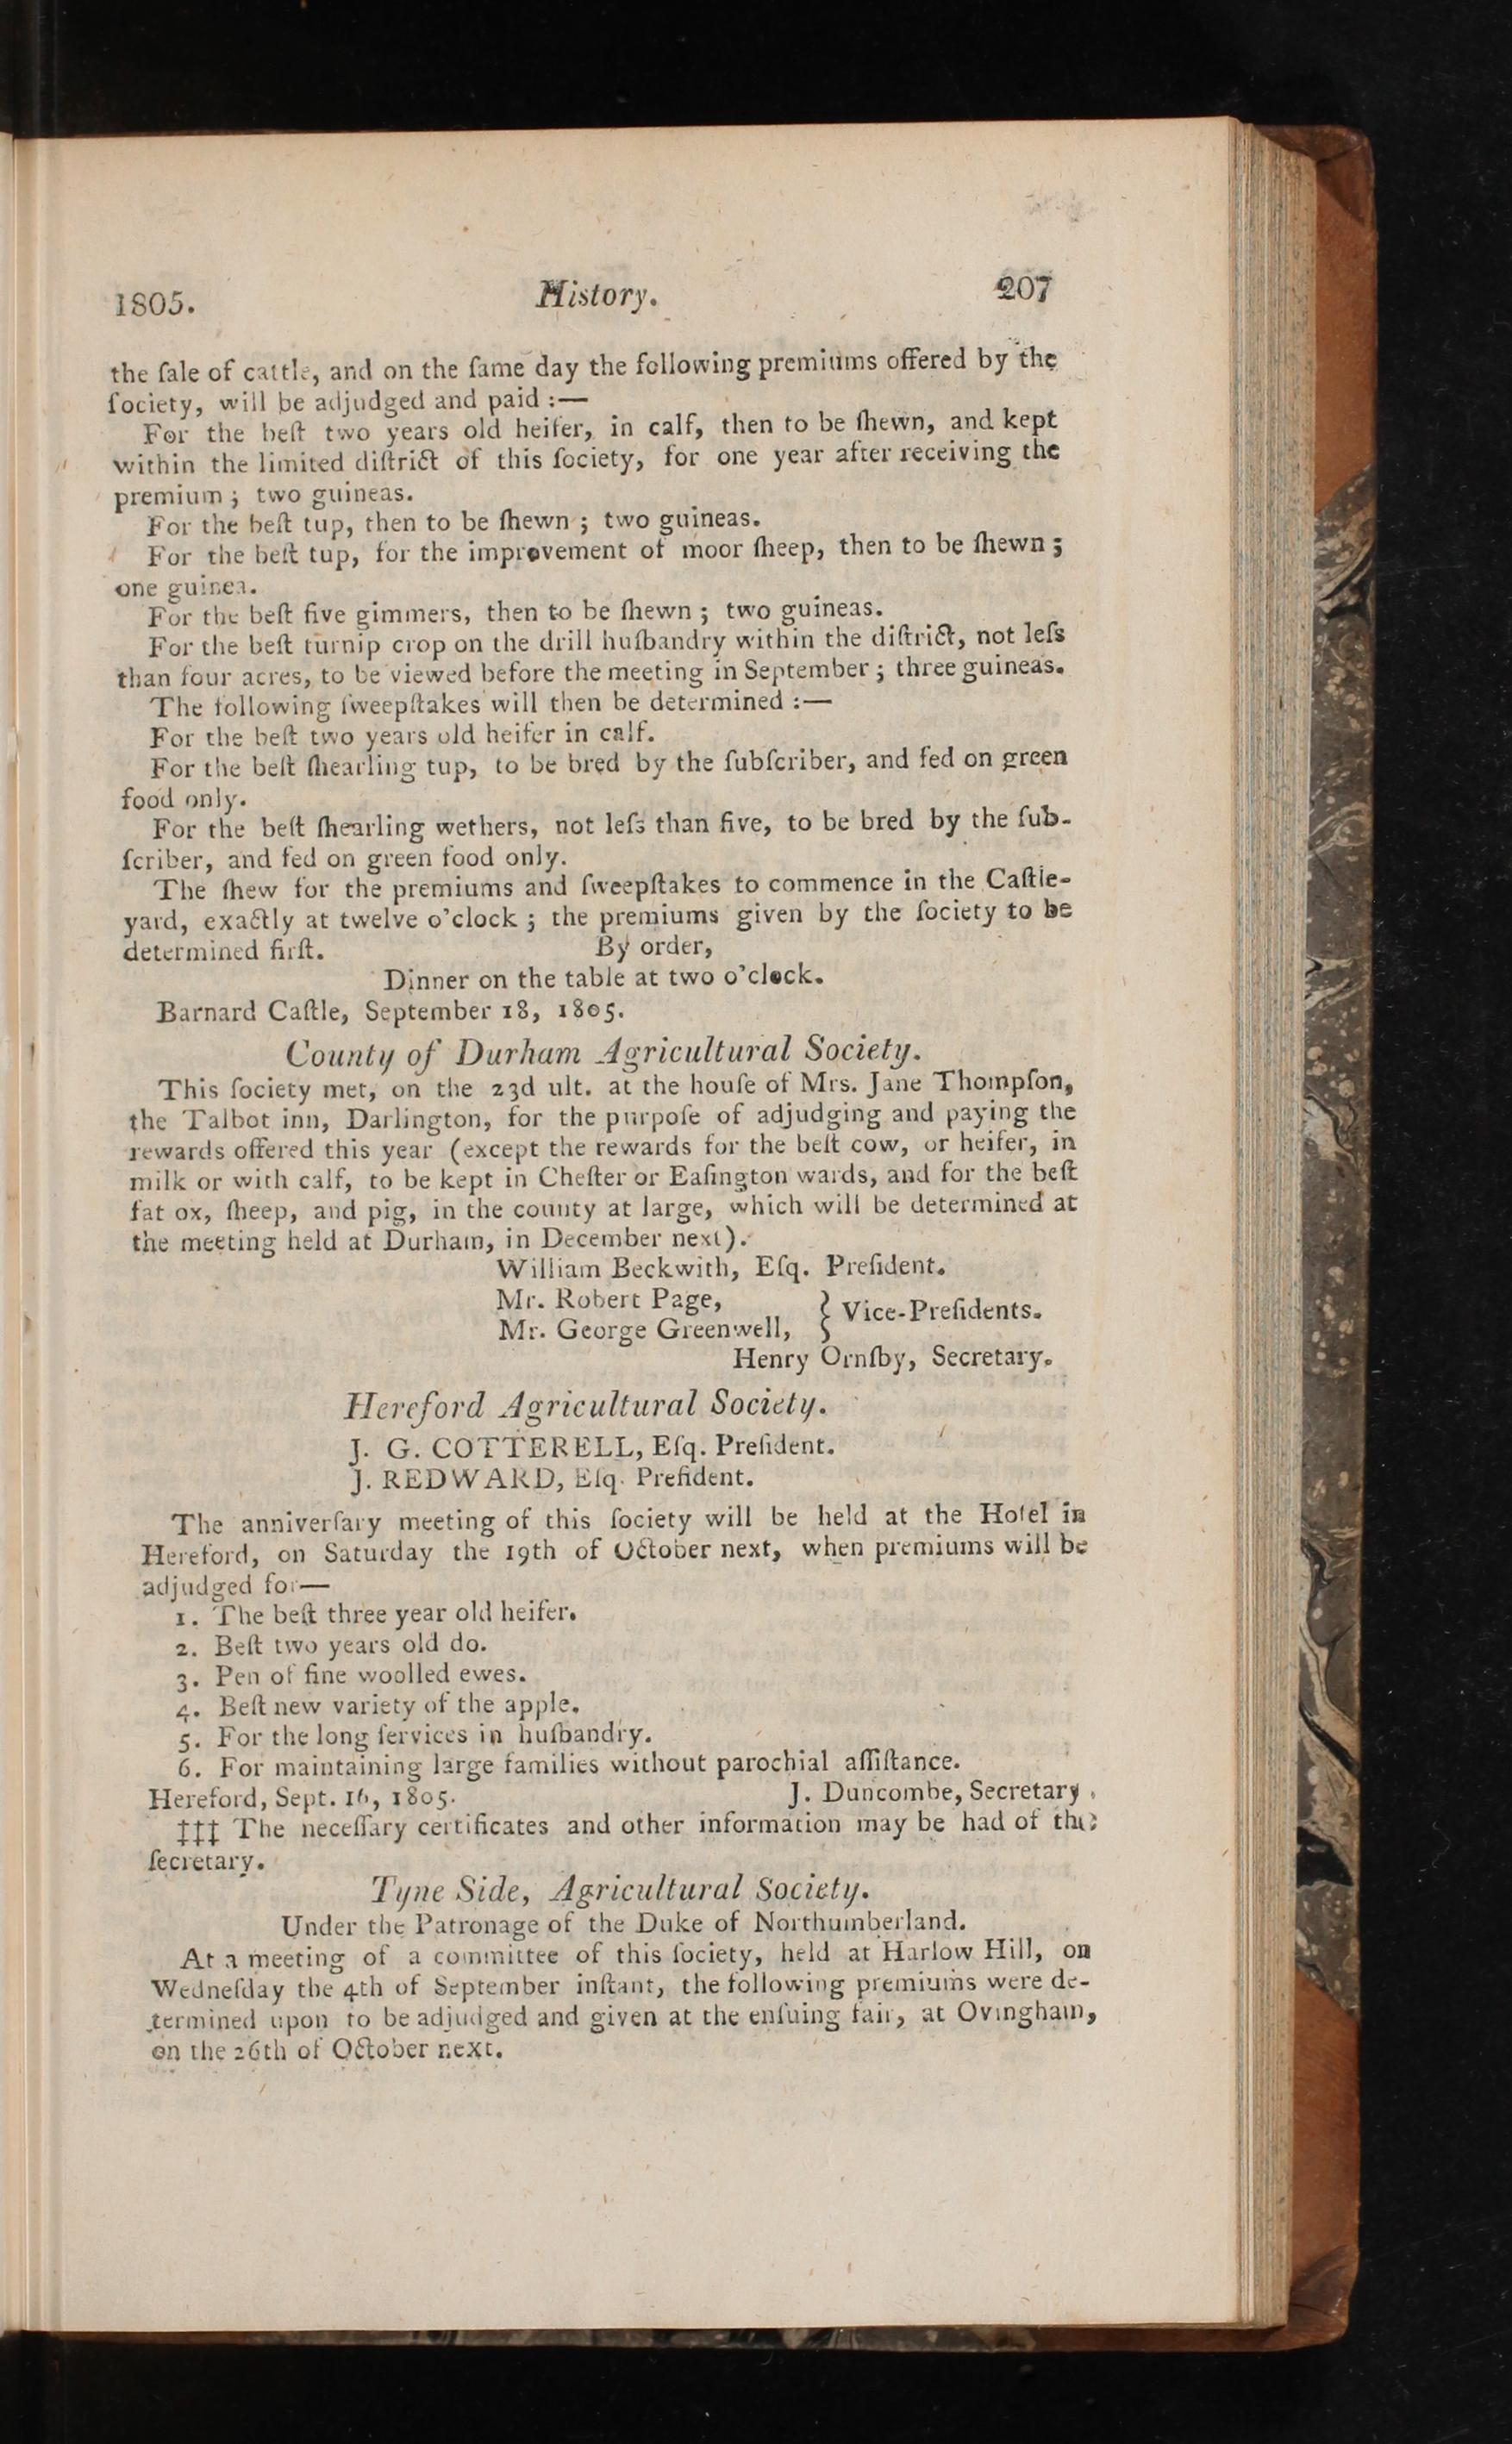 1805. History. 207
the ſale of cattle, and on the ſame day the following premiums offered by the
ſociety, will be adjudged and paid :—
For the beſt two years old heifer, in calf, then to be ſhewn, and kept
within the limited diſtrict of this ſociety, for one year after receiving the
premium ; two guineas.
For the beſt tup, then to be ſhewn ; two guineas.
For the beſt tup, for the improvement of moor ſheep, then to be ſhewn ;
one guinea.
For the beſt five gimmers, then to be ſhewn ; two guineas.
For the beſt turnip crop on the drill huſbandry within the diſtrict, not leſs
than four acres, to be viewed before the meeting in September ; three guineas.
The following ſweepſtakes will then be determined :—
For the beſt two years old heifer in calf.
For the beſt ſhearling tup, to be bred by the ſubſcriber, and fed on green
food only.
For the beſt ſhearling wethers, not leſs than five, to be bred by the ſub-
ſcriber, and fed on green food only.
The ſhew for the premiums and ſweepſtakes to commence in the Caſtle-
yard, exactly at twelve o'clock ; the premiums given by the ſociety to be
determined firſt. By order,
Dinner on the table at two o'clock.
Barnard Caſtle, September 18, 1805.
County of Durham Agricultural Society.
This ſociety met, on the 23d ult. at the houſe of Mrs. Jane Thompſon,
the Talbot inn, Darlington, for the purpoſe of adjudging and paying the
rewards offered this year (except the rewards for the beſt cow, or heifer, in
milk or with calf, to be kept in Cheſter or Eaſington wards, and for the beſt
fat ox, ſheep, and pig, in the county at large, which will be determined at
the meeting held at Durham, in December next).
William Beckwith, Eſq. Preſident.
Mr. Robert Page,
Mr. George Greenwell, } Vice-Preſidents.
Henry Ornſby, Secretary.
Hereford Agricultural Society.
J. G. COTTERELL, Eſq. Preſident.
J. REDWARD, Eſq. Preſident.
The anniverſary meeting of this ſociety will be held at the Hotel in
Hereford, on Saturday the 19th of October next, when premiums will be
adjudged for—
1. The beſt three year old heifer.
2. Beſt two years old do.
3. Pen of fine woolled ewes.
4. Beſt new variety of the apple.
5. For the long ſervices in huſbandry.
6. For maintaining large families without parochial aſſiſtance.
Hereford, Sept. 16, 1805. J. Duncombe, Secretary.
‡‡‡ The neceſſary certificates and other information may be had of the
ſecretary.
Tyne Side, Agricultural Society.
Under the Patronage of the Duke of Northumberland.
At a meeting of a committee of this ſociety, held at Harlow Hill, on
Wedneſday the 4th of September inſtant, the following premiums were de-
termined upon to be adjudged and given at the enſuing fair, at Ovingham,
on the 26th of October next.